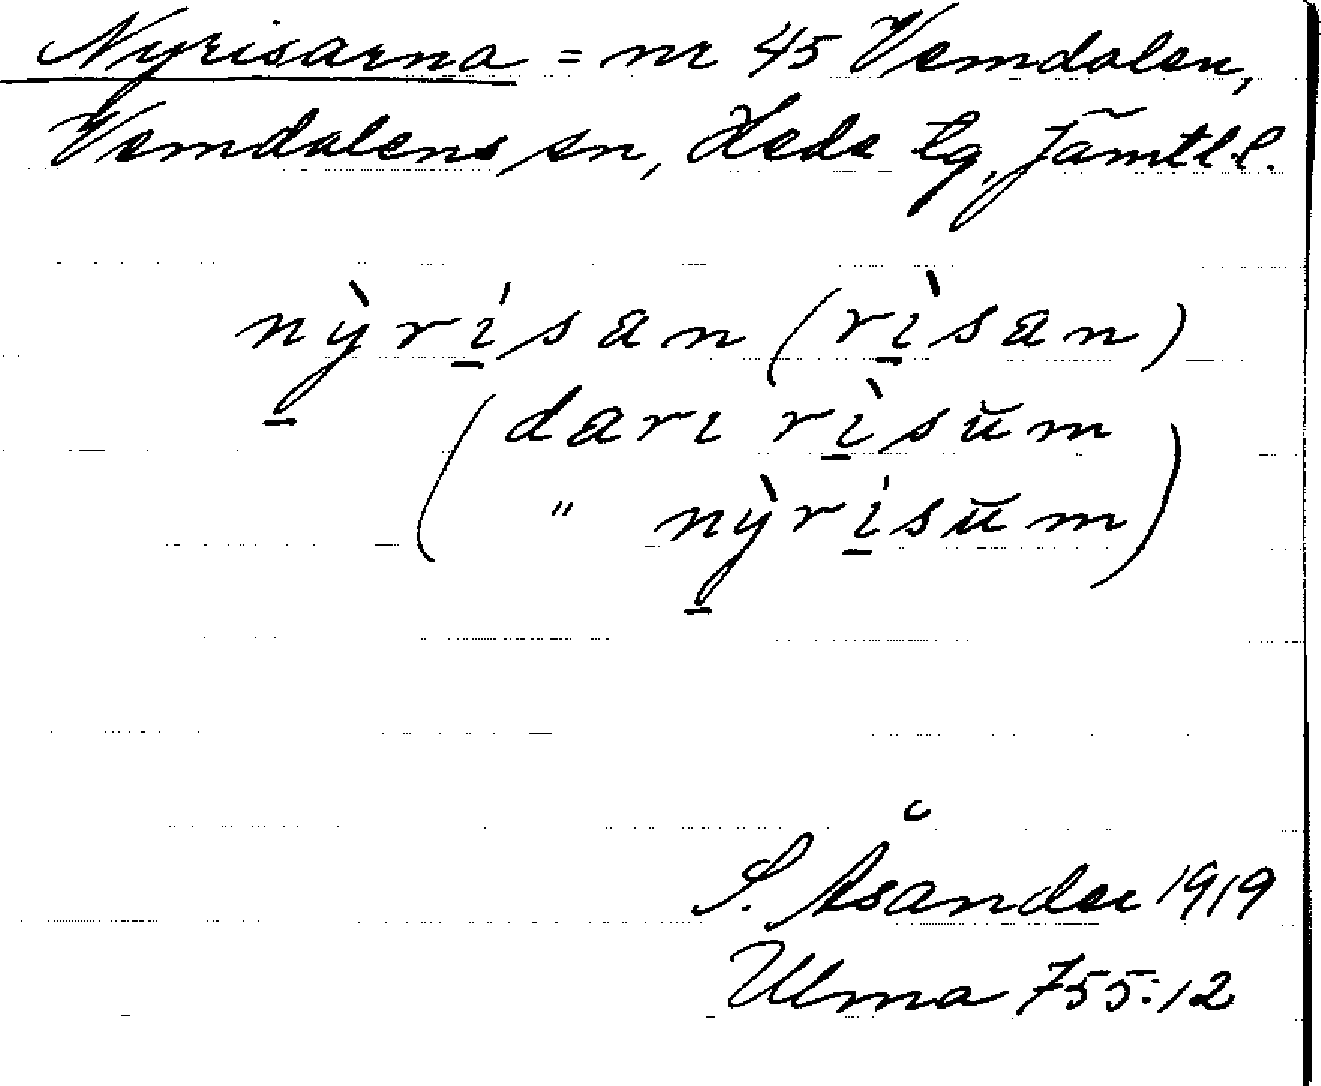 Nyrisarna = nr 45 Vemdalen,
Vemdalens sn, Hede tg, Jämtl. l.
nỳ̱rí̱san (rì̱san)
(darı rì̱sŭm
" nỳ̱rí̱sŭm)
S. Åsander 1919
Ulma 755:12